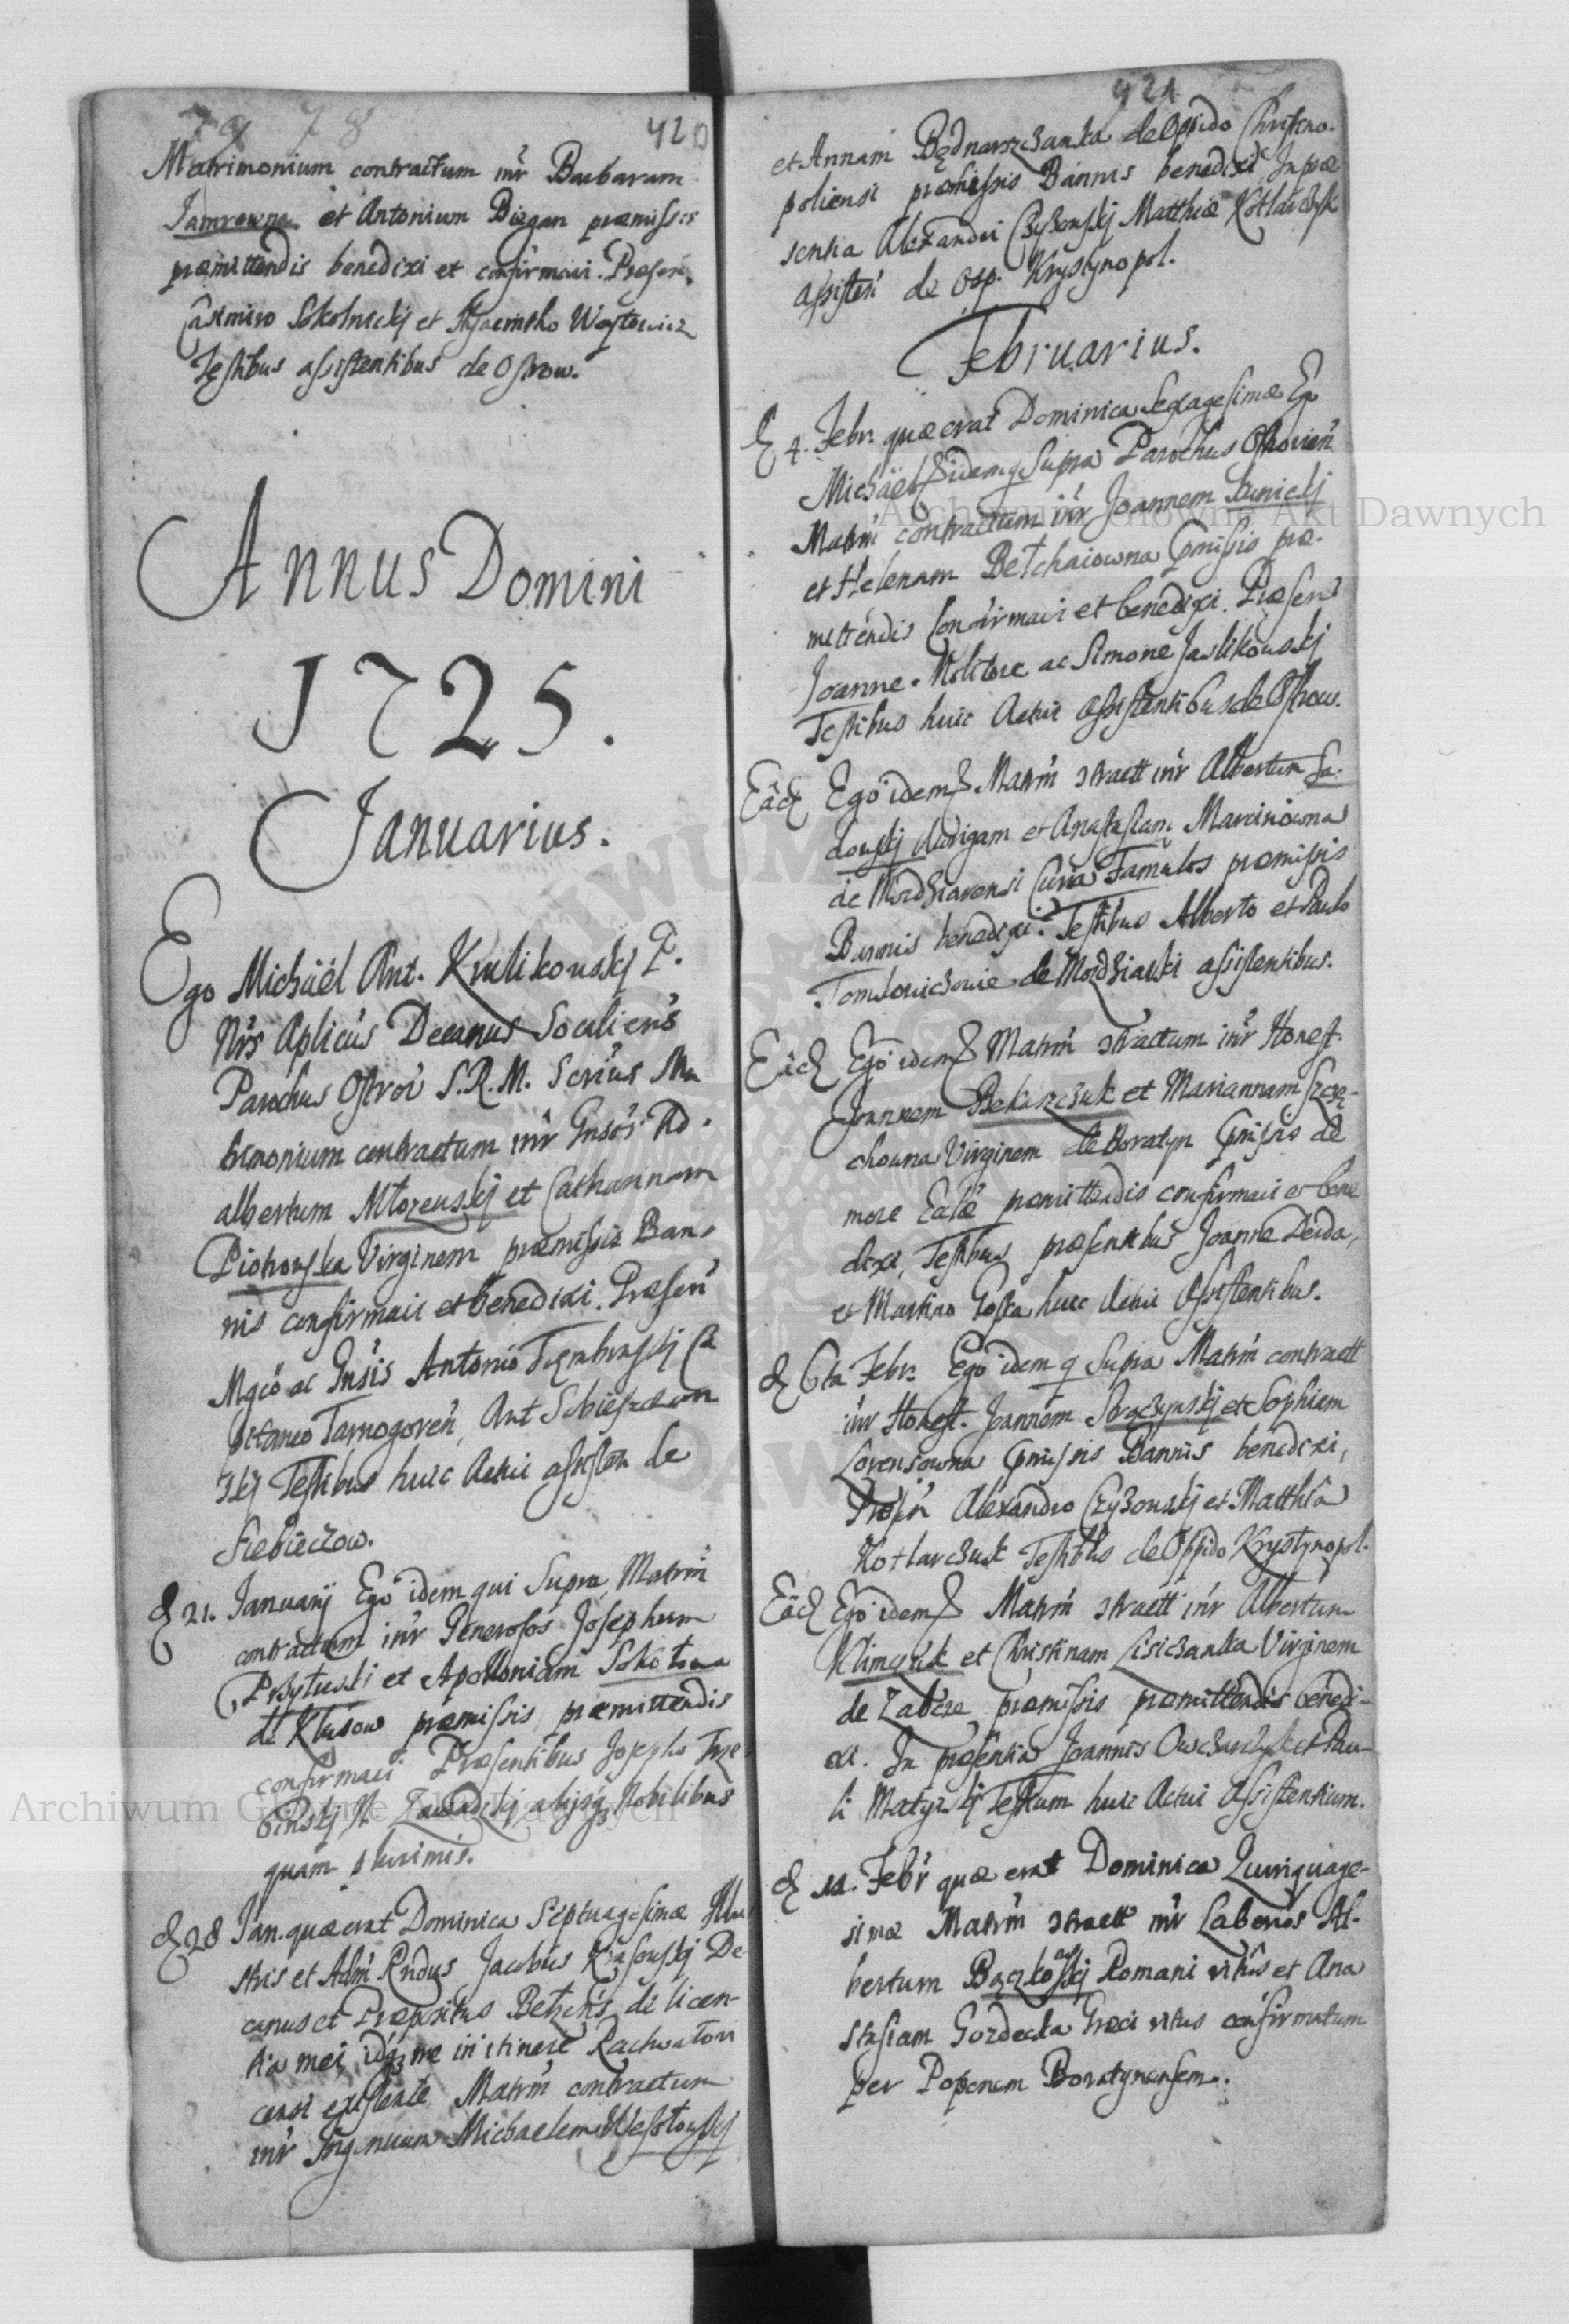 79 78 420
Matrimonium contractum inr Barbaram
Jamrowna et Antonium Diegan præmissis
præmittendis benedixi et confirmavi. Præsen.
Casimiro Sokolnickij et Hyacintho Woytowicz
Testibus assistentibus de Ostrow.
Annus Domini
1725.
Januarius.
Ego Michäel Ant. Krulikowskj P.
Nrs Aplicus Decanus Socaliens
Parochus Ostrov S.R.M. Scrius Ma
trimonium contractum inr Gnsos Ad.
albertum Młozewskj et Catharinam
Piotrowska Virginem præmissis Ban.
nis confirmavi et benedixi. Præsen
Mgco ac Gnsis Antonio Trembinskj Ca
pitaneo Tarnogoren, Ant Sobieszczan
skj Testibus huic Actui assisten de
Siebieczow.
D 21. Januarij Ego idem qui Supra Matrm
contractum inr Generosos Josephum
Przyłuski et Apolloniam Sokołowa
de Klusow præmissis præmittendis
confirmavi Præsentibus Josepho Trze
binskj N Zawadskj alijsq Nobilibus
quam plurimis.
D 28 Jan. quæ erat Dominica Septuagesimæ Illu
stris et Adm Rndus Jacobus Krasowskj De
canus et Præpositus Bełzens de licen-
tia mei, idq me in itinere Rachwałovi
censi existente Matrm contractum
inr Ingenuum Michaelem Wesołowskj
421
et Annam Bednarzczanka de Oppido Christno.
poliensi præmissis Bannis benedixi In præ
sentia Alexandri Czyzowskj Matthiæ Kotlarczyk
assisten de Opp. Krystynopol.
Februarius.
D 4. Febr. quæ erat Dominica Sexagesimæ Ego
Michäel idem q Supra Parochus Ostrovien
Matrm contractum inr Joannem Kunickj
et Helenam Bełchaiowna pmissis præ.
mittendis confirmavi et benedixi. Præsen
Joanne Molitore ac Simone Jaslikowskj
Testibus huic Actui assistentibus de Ostrow.
Eâd Ego idem q Matrm ctractt inr Albertum Sa.
dowskj Aurigam et Anastasiam Marciniowna
de Mordziarensi Curia Famulos præmissis
Bannis benedixi. Testibus Alberto et Paulo
Tomlowiczowie de Mordziarki assistentibus.
Eâd Ego idem q Matrm ctractum inr Honest.
Joannem Bekarczuk et Mariannam Szczę-
chowna Virginem de Boratyn pmissis de
more Eccliæ præmittendis confirmavi et bene
dixi, Testibus præsentibus Joanne Derda,
et Martino Goska huic Actui Assistentibus.
D 6ta Febr. Ego idem q Supra Matrm contractt
inr Honest. Joannem Skoczynskj et Sophiam
Lorensowna pmissis Bannis benedixi,
Præsen Alexandro Czyzowskj et Matthia
Kotlarczuk Testibus de Oppido Krystynopol.
Eâd Ego idem q Matrm ctractt inr Albertum
Klimczuk et Christinam Lisiczanka Virginem
de Zabcze præmissis præmittendis benedi-
xi. In præsentia Joannis Owczarczyk et Pau-
li Matyzkj Testium huic Actui Assistentium.
D 11. Febr quæ erat Dominica Quinquage-
simæ Matrm ctractt inr Laborios Al.
bertum Bączkowskj Romani ritus et Ana
stasiam Gozdecka Græci ritus confirmatum
per Poponem Boratynensem.
Archiwum Główne Akt Dawnych
Archiwum Główne Akt Dawnych